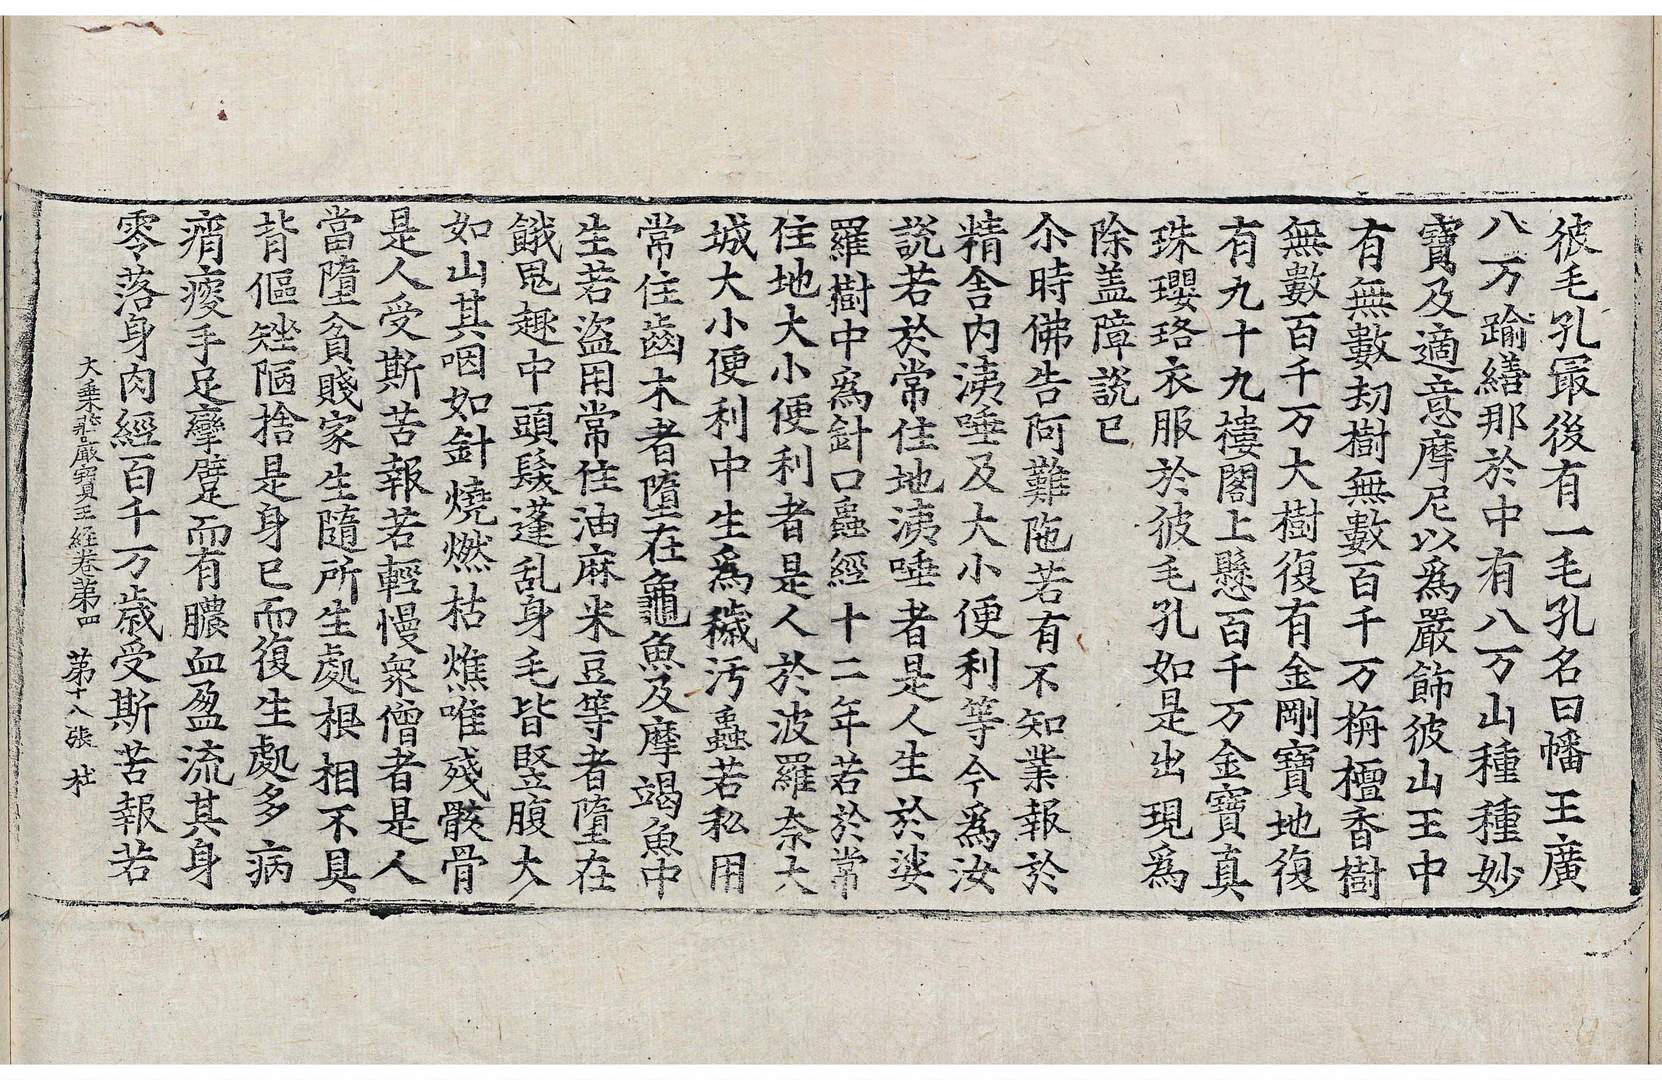 彼毛孔㝡後有一毛孔名曰幡王廣
八万踰繕那於中有八万山種種妙
寶及適意摩尼以爲嚴飾彼山王中
有無數劫樹無數百千万栴檀香樹
無數百千万大樹復有金剛寶地復
有九十九樓閣上懸百千万金寶真
珠瓔珞衣服於彼毛孔如是出現爲
除盖障說已
尒時佛告阿難陁若有不知業報於
精舍內洟唾及大小便利等今爲汝
説若於常住地洟唾者是人生於娑
羅樹中爲針口蟲經十二年若於常
住地大小便利者是人於波羅奈大
城大小便利中生爲穢汚蟲若私用
常住齒木者墮在龜魚及摩竭魚中
生若盜用常住油麻米豆等者墮在
餓鬼趣中頭髮蓬乱身毛皆竪腹大
如山其咽如針燒燃枯燋唯殘骸骨
是人受斯苦報若輕慢衆僧者是人
當墮貧賤家生隨所生處根相不具
背傴矬陋捨是身已而復生處多病
痟瘦手足攣躄而有膿血盈流其身
零落身肉經百千万歲受斯苦報若
大乗莊嚴寶王経卷苐四 苐十八張 杜